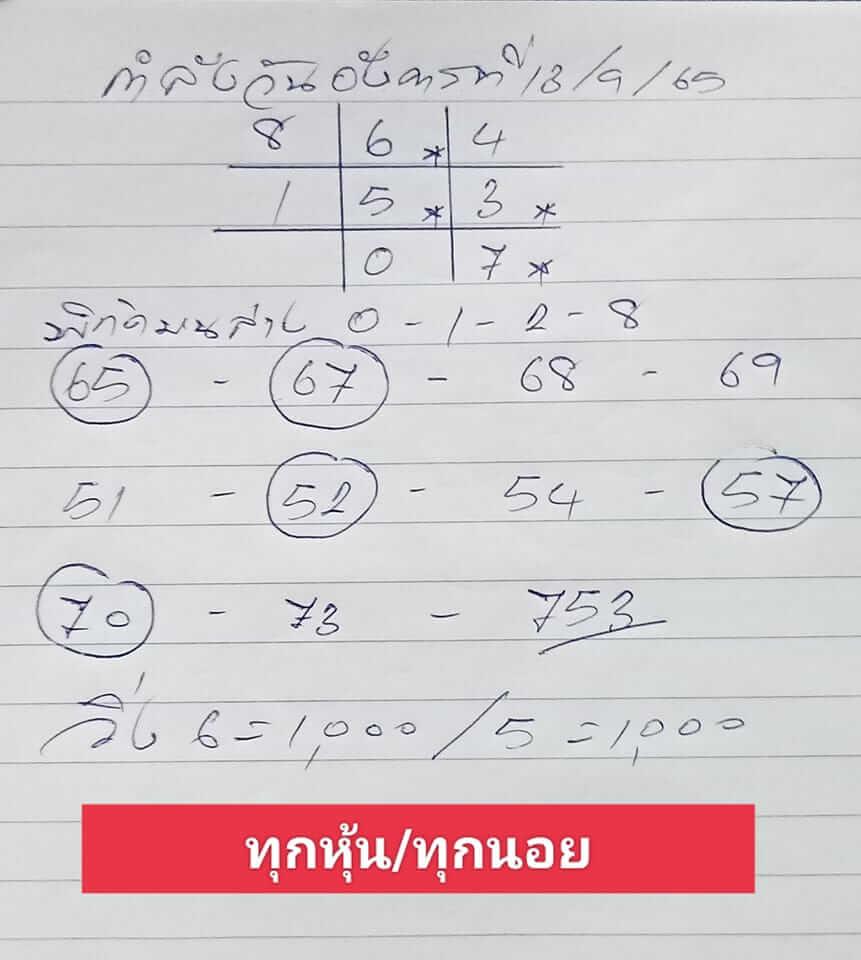 กำลังวันอังคารที่ 13/9/65
8 6 * 4
1 5 * 3 *
0 7 *
พิกัดบนล่าง 0 - 1 - 2 - 8
65 - 67 - 68 - 69
51 - 52 - 54 - 57
70 - 73 - 753
วิ่ง 6 = 1,000 / 5 = 1,000
ทุกหุ้น/ทุกนอย